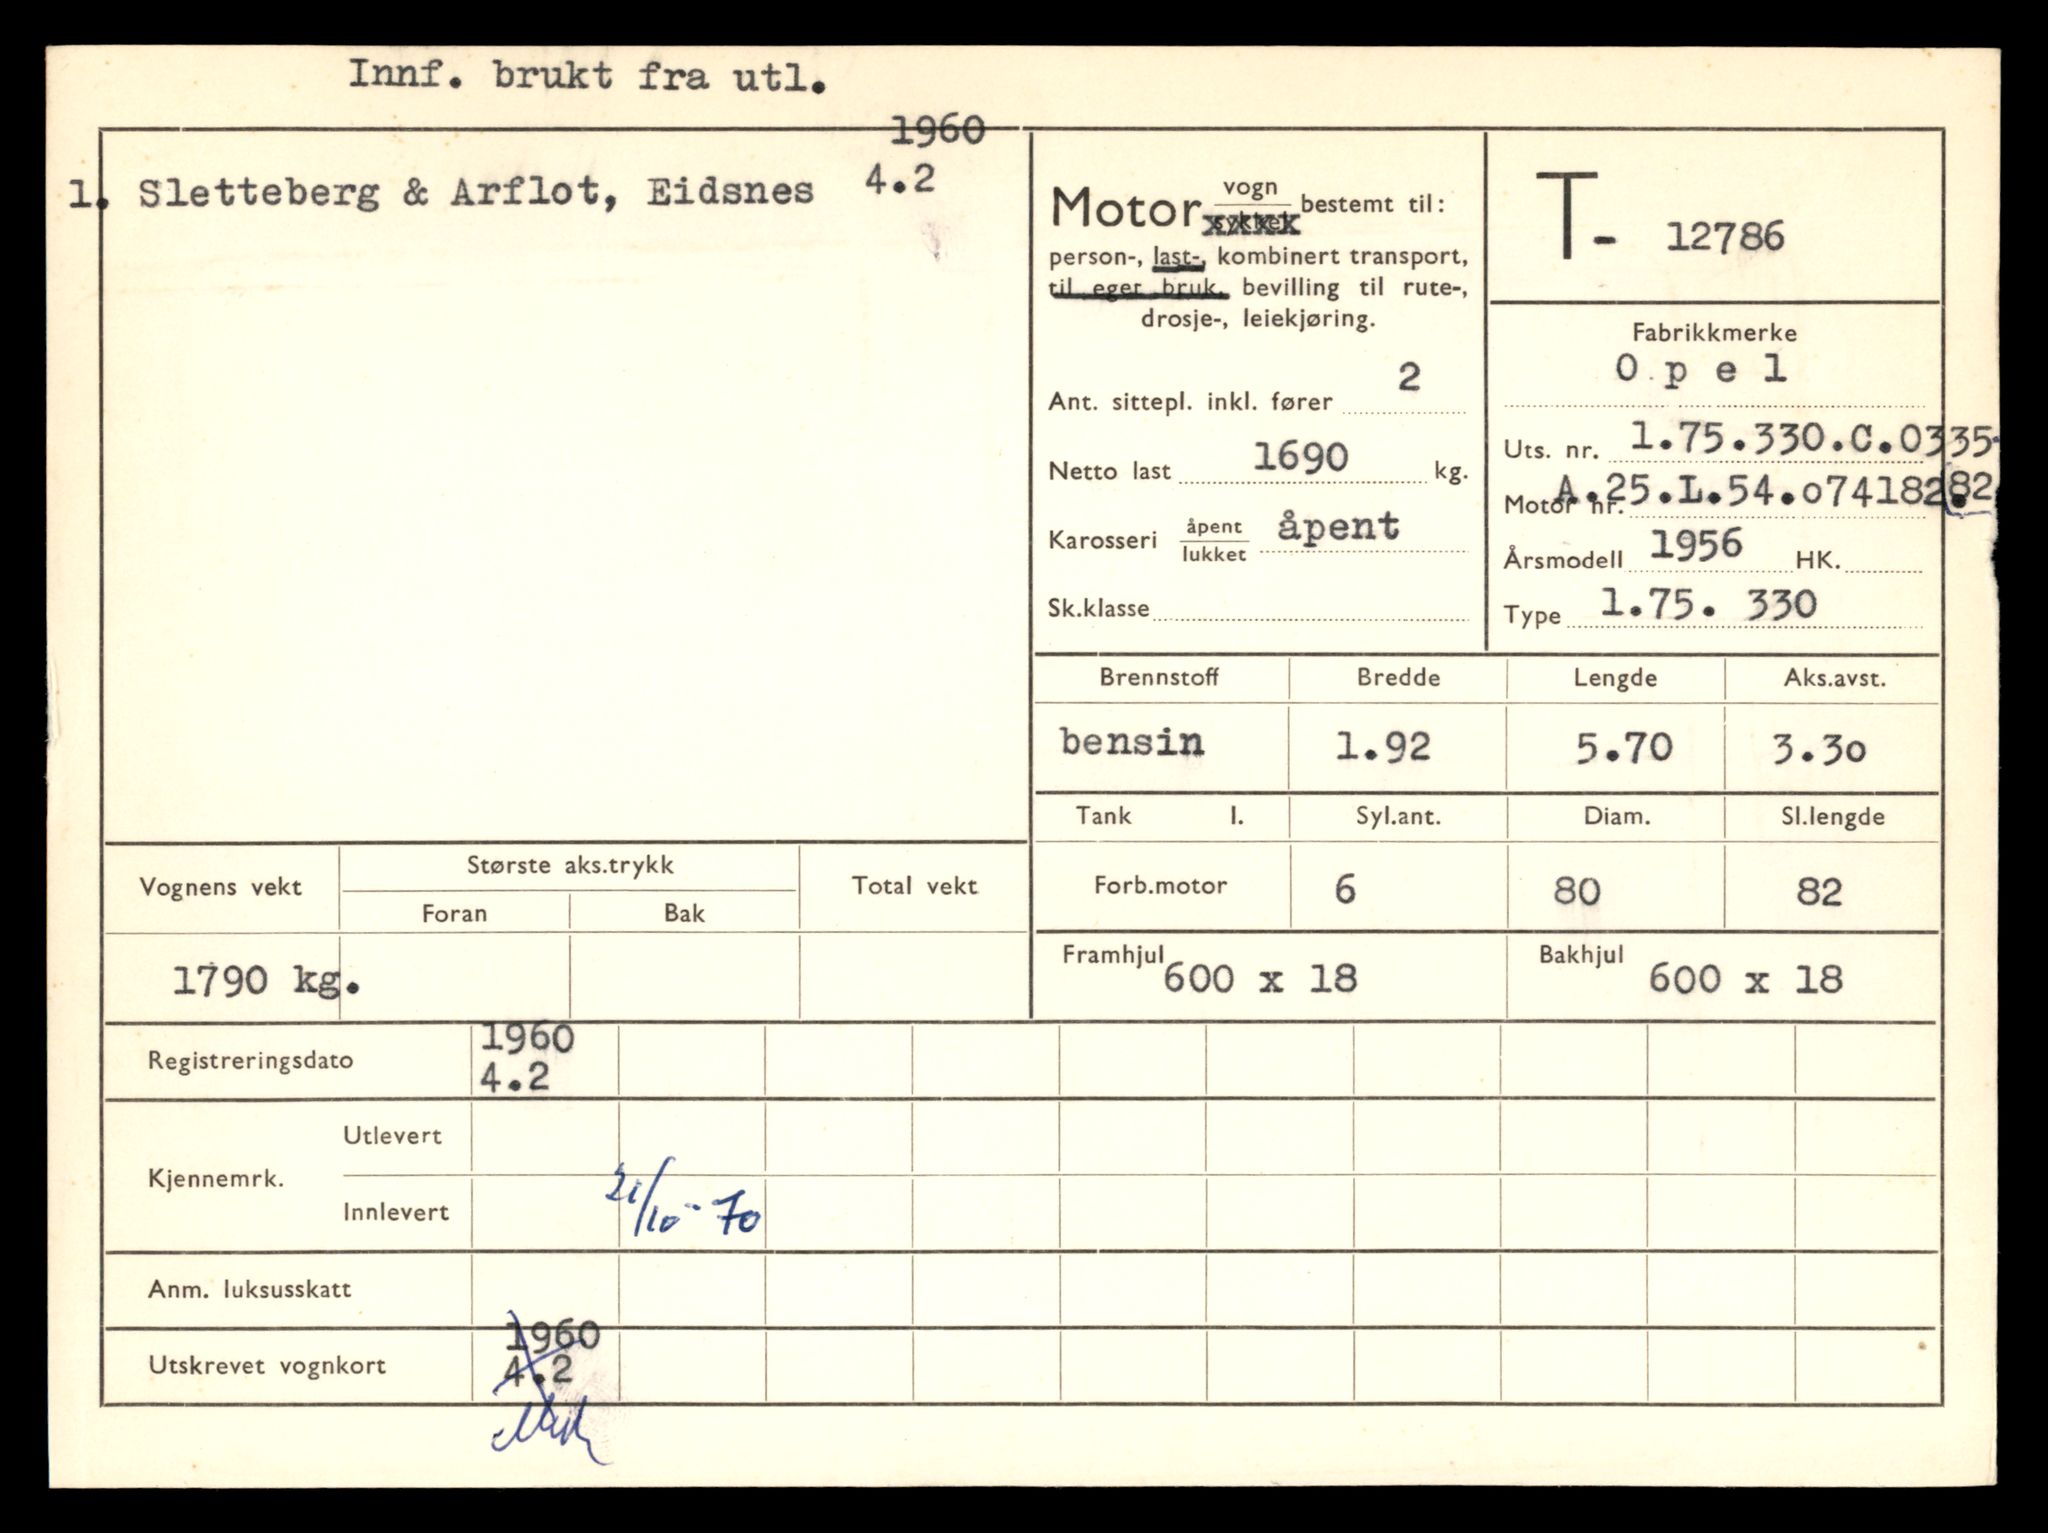 Innf. brukt fra utl.
1960
1. Sletteberg & Arflot, Eidsnes 4.2
Motor vogn
sykkel bestemt til:
person-, last-, kombinert transport,
til eget bruk, bevilling til rute-,
drosje-, leiekjøring.
Ant. sittepl. inkl. fører 2
Netto last 1690 kg.
Karosseri åpent
lukket åpent
Sk.klasse
T- 12786
Fabrikkmerke
O p e l
Uts. nr. 1.75.330.C.0335-
82
Motor nr. A.25.L.54.o74182.
Årsmodell 1956 HK.
Type 1.75. 330
Brennstoff Bredde Lengde Aks.avst.
bensin 1.92 5.70 3.3o
Tank l. Syl.ant. Diam. Sl.lengde
Forb.motor 6 80 82
Framhjul 600 x 18 Bakhjul 600 x 18
Vognens vekt Største aks.trykk Total vekt
Foran Bak
1790 kg.
Registreringsdato 1960
4.2
Kjennemrk. Utlevert
Innlevert 21/10-70
Anm. luksusskatt
Utskrevet vognkort 1960
4.2